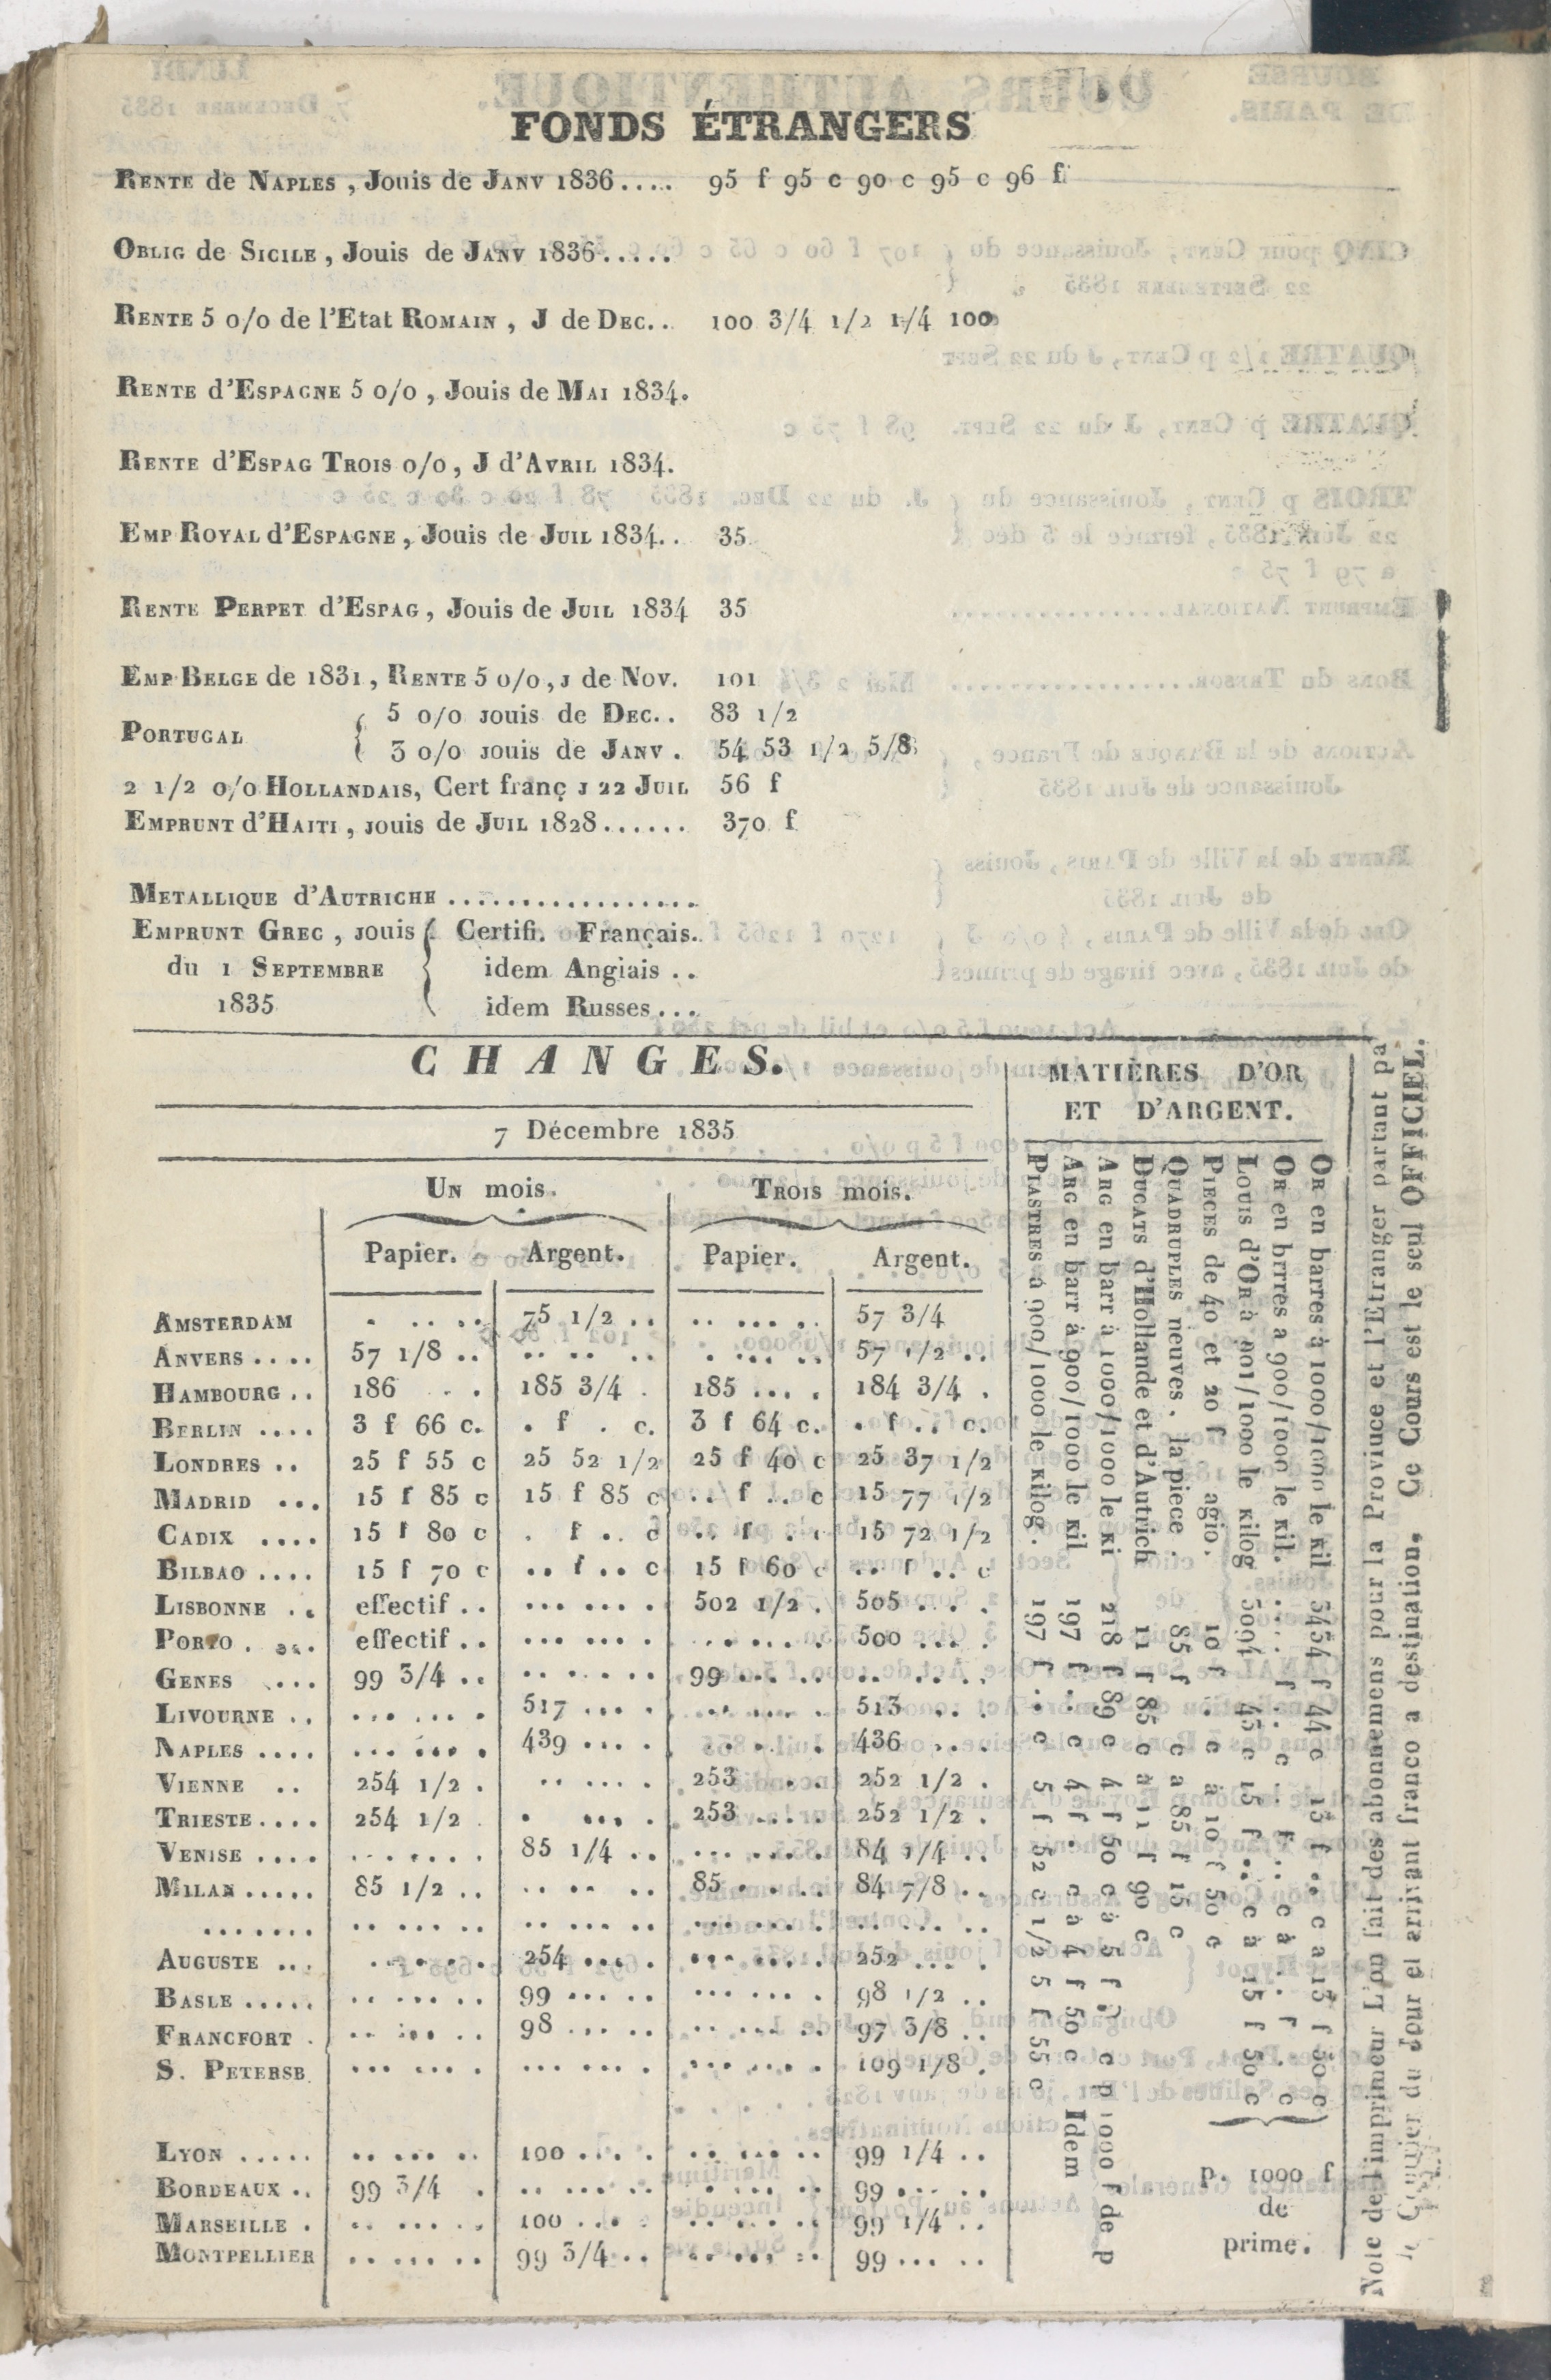 FONDS ÉTRANGERS
RENTE de NAPLES , Jouis de JANV 1836.... 95 f 95 c 90 c 95 c 96 f
OBLIG de SICILE , Jouis de JANV 1836.....
RENTE 5 o/o de l'Etat ROMAIN , J de DEC.. 100 3/4 1/2 1/4 100
RENTE d'ESPAGNE 5 o/o , Jouis de MAI 1834.
RENTE d'ESPAG TROIS o/o , J d'AVRIL 1834.
EMP ROYAL d'ESPAGNE , Jouis de JUIL 1834.. 35
RENTE PERPET d'ESPAG, Jouis de JUIL 1834 35
EMP BELGE de 1831 , RENTE 5 o/o, J de Nov. 101
PORTUGAL { 5 o/o Jouis de DEC.. 83 1/2
3 o/o Jouis de JANV . 54 53 1/2 5/8
2 1/2 o/o HOLLANDAIS, Cert franç J 22 JUIL 56 f
EMPRUNT d'HAITI , Jouis de JUIL 1828...... 370 f
METALLIQUE d'AUTRICHE .................
EMPRUNT GREC , JOUIS { Certifi. Français..
du 1 SEPTEMBRE idem Angiais ..
1835 idem Russes...
CHANGES.
7 Décembre 1835
UN mois. TROIS mois.
Papier. Argent. Papier. Argent.
AMSTERDAM . .. .. 75 1/2 .. .. ... .. 57 3/4
ANVERS .... 57 1/8 .. .. .. .. . ... .. 57 1/2 ..
HAMBOURG .. 186 .. . 185 3/4 . 185 ... . 184 3/4 .
BERLIN .... 3 f 66 c. . f . c. 3 f 64 c. . f .. c.
LONDRES .. 25 f 55 c 25 52 1/2 25 f 40 c 25 37 1/2
MADRID ... 15 f 85 c 15 f 85 c .. f .. c 15 77 1/2
CADIX .... 15 f 80 c . f .. c .. f . c 15 72 1/2
BILBAO .... 15 f 70 c .. f .. c 15 f 60 c .. f .. c
LISBONNE .. effectif .. ... ... . 502 1/2 . 505 ... .
PORTO . ... effectif .. ... ... . .. ... . 500 ... .
GENES .... 99 3/4 .. .. ... .. 99 ... .. .. ... ..
LIVOURNE .. ... ... . 517 ... . .. ... . 513 ... .
NAPLES .... ... ... . 439 ... . .. ... . 436 ... .
VIENNE .. 254 1/2 . .. ... . 253 ... . 252 1/2 .
TRIESTE.... 254 1/2 . . ... . 253 ... . 252 1/2 .
VENISE .... .. ... .. 85 1/4 .. ... ... . 84 1/4 ..
MILAN ..... 85 1/2 .. .. .. .. 85 . ... 84 7/8 ..
....... .. ... .. .. ... .. ... ... . .. ... ..
AUGUSTE ... .. ... . 254 ... . ... ... . 252 ... .
BASLE ..... .. ... .. 99 ... .. ... ... . 98 1/2 ..
FRANCFORT . .. ... .. 98 ... .. .. ... .. 97 3/8 ..
S. PETERSB. ... ... . ... ... . ... ... . 109 1/8 .
LYON ..... .. ... .. 100 ... . .. ... .. 99 1/4 ..
BORDEAUX .. 99 3/4 . .. ... .. . ... .. 99 ... ..
MARSEILLE . .. ... .. 100 ... . .. ... .. 99 1/4 ..
MONTPELLIER .. ... .. 99 3/4 .. .. ... .. 99 ... ..
MATIÈRES D'OR
ET D'ARGENT.
OR en barres à 1000/1000 le KIL 3434 f 44 c 13 f .. c a 13 f 50 c
OR en brrres a 900/1000 le KIL. .... f .. c .. f .. c à .. f . c
LOUIS d'OR à 901/1000 le KILOG 3094 45 c 15 f .. c à 15 f 50 c
PIECES de 40 et 20 f agio. 10 f . c à 10 f 50 c
QUADRUPLES neuves , la piece . 85 f c a 85 f 15 c
DUCATS d'Hollande et d'Autrich 11 f 85 c a 11 f 90 c
ARG en barr à 1000/1000 le KI 218 f 89 c 4 f 50 c à 5 f . c p 1000 f de p
ARG en barr à 900/1000 le KIL 197 f . c 4 f . c à 4 f 50 c Idem
PIASTRES à 900/1000 le KILOG . 197 f .. c 5 f 52 c 1/2 5 f 55 c
p. 1000 f
de
prime.
Note de l'imprimeur L'on fait des abonnemens pour la Proviuce et l'Etranger partant pa
le Courier du Jour et arrivant franco a destinaiion, Ce Cours est le seul OFFICIEL.